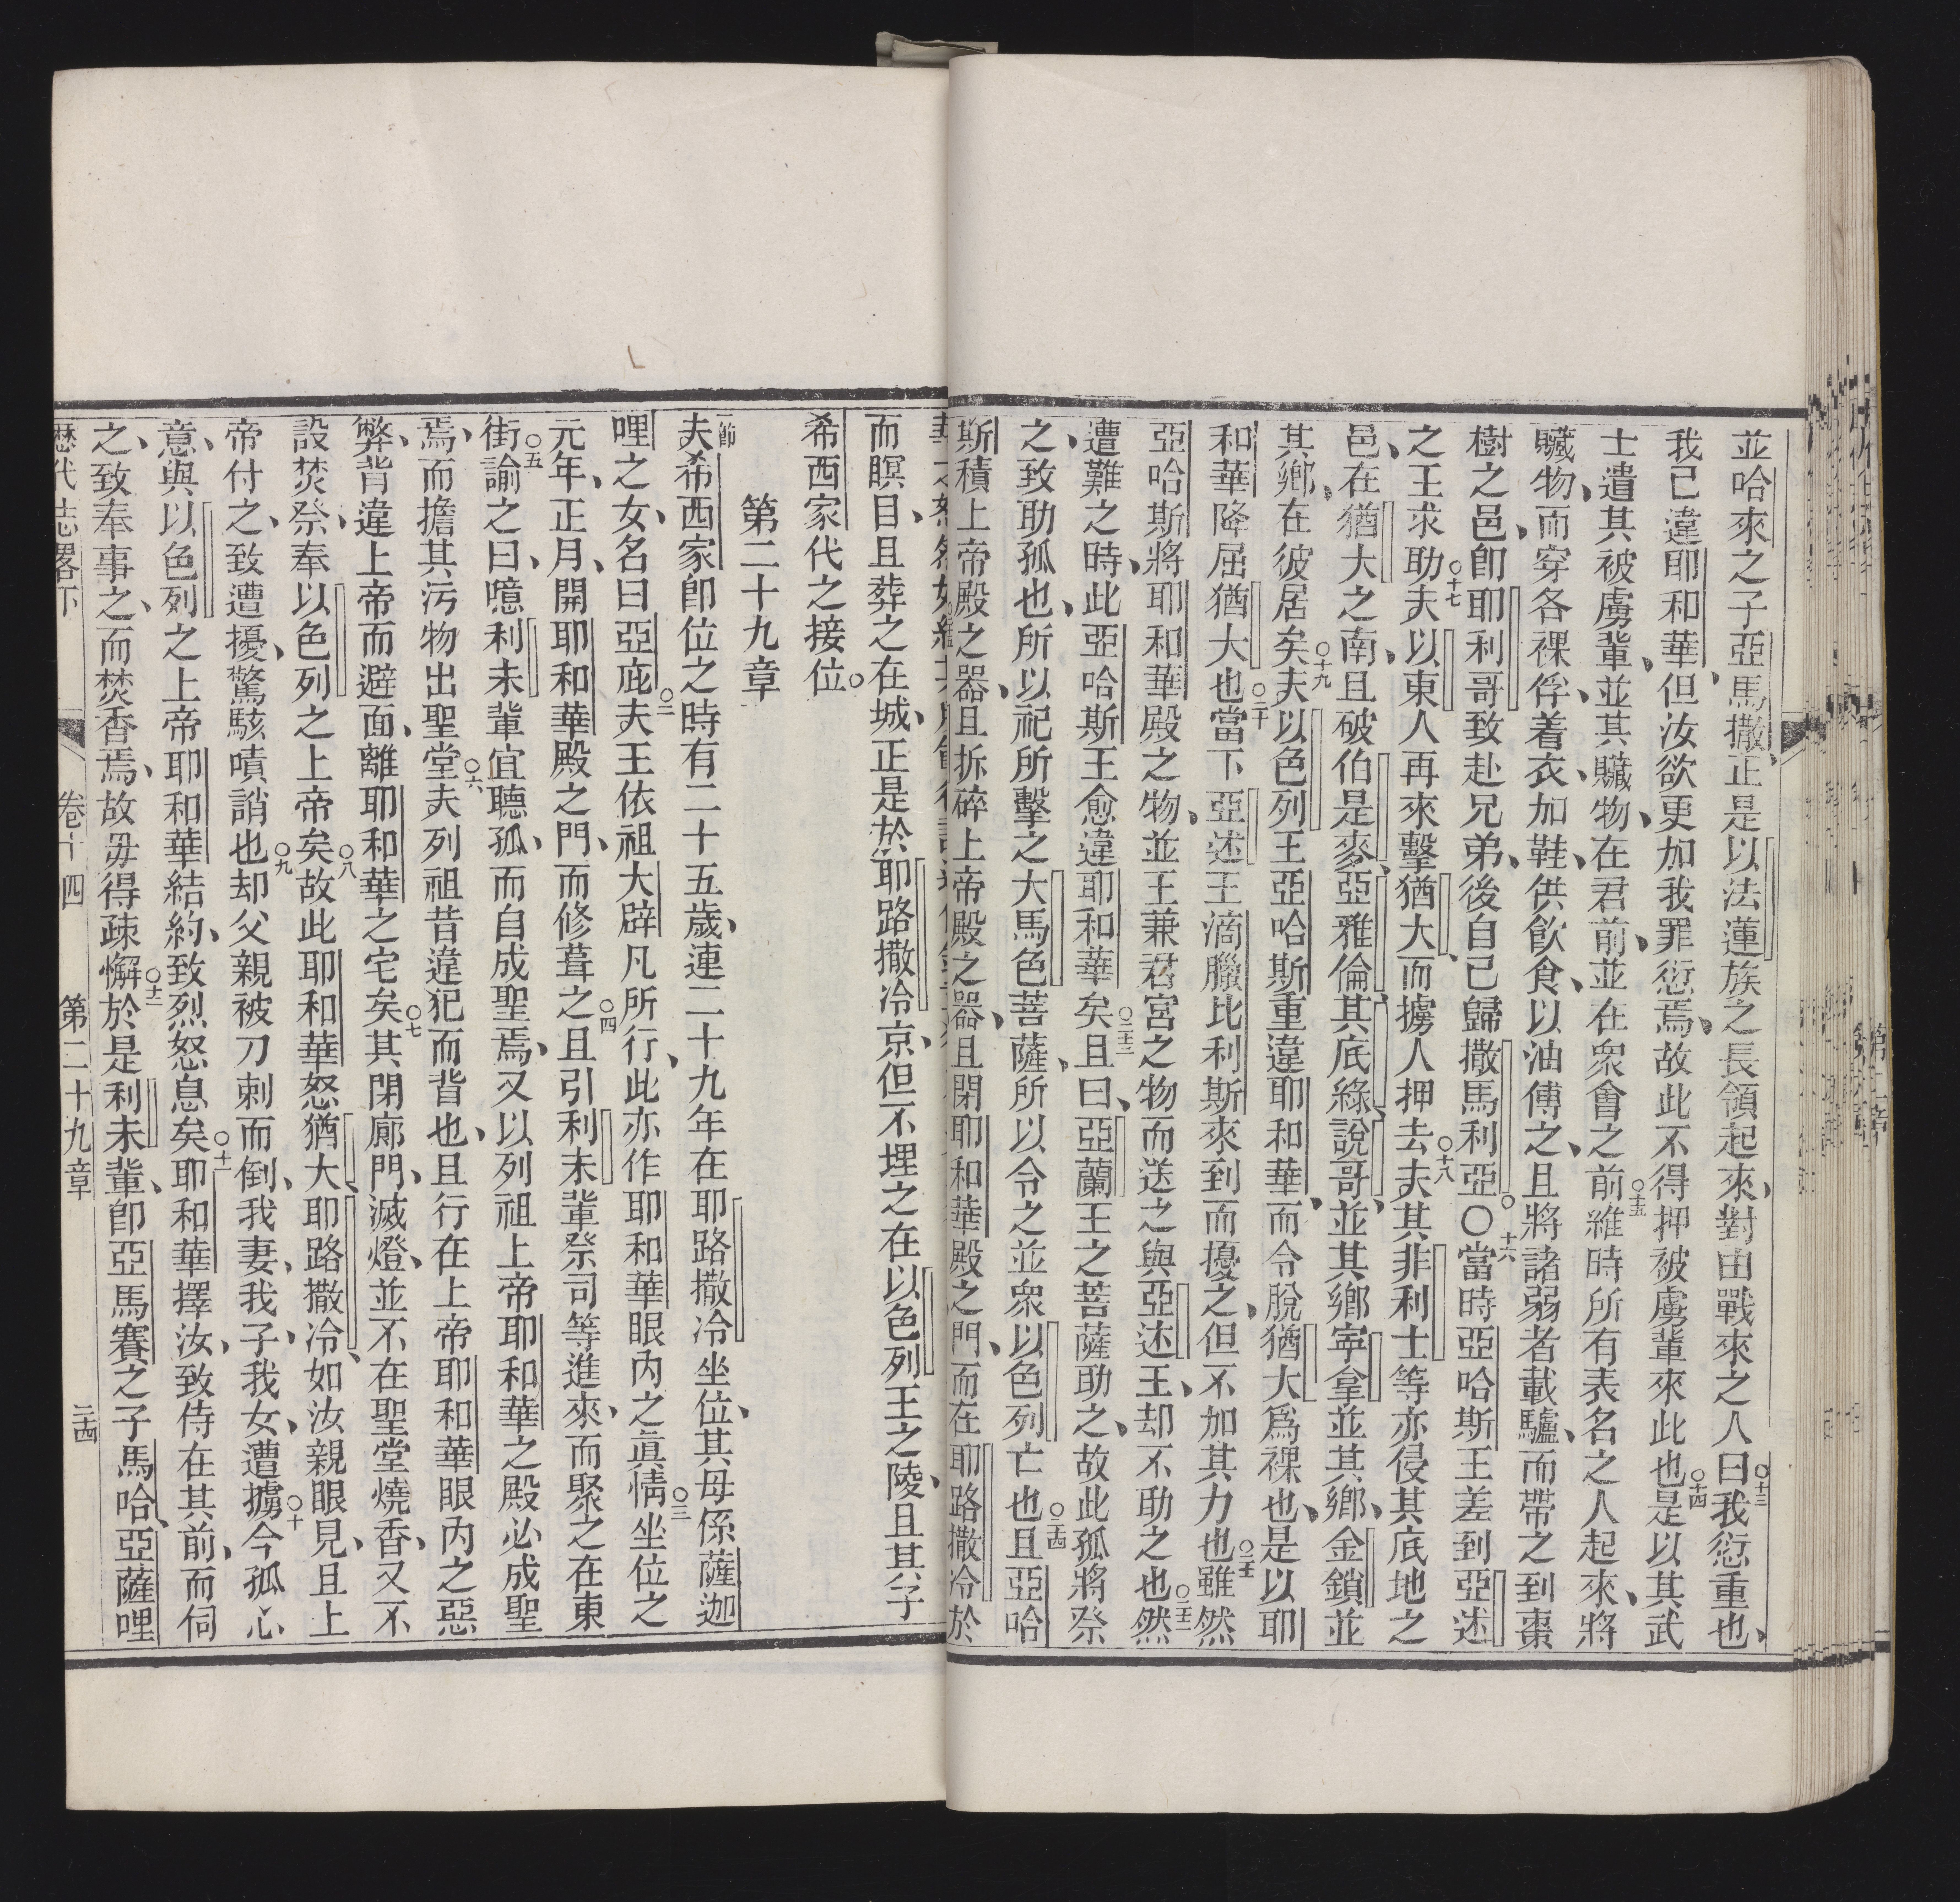 並哈來之子亞馬撒、正是以法蓮族之長領起來、對由戰來之人○十三曰我愆重也、
我己違耶和華、但汝欲更加我罪愆焉、故此不得押被虜輩來此也○十四是以其武
士遣其被虜輩、並其贜物、在君前、並在眾會之前○十五維時所有表名之人起來、將
贜物、而穿各裸俘、着衣、加鞋、供飲食、以油傅之、且將諸弱者載驢、而帶之到棗
樹之邑、卽耶利哥致赴兄弟、後自己歸撒馬利亞。〇十六當時亞哈斯王差到亞述
之王求助○十七夫以東人再來擊猶大、而擄人押去○十八夫其非利士等亦侵其底地之
邑、在猶大之南、且破伯是麥、亞雅倫、其底綠、說哥、並其鄉、寕拿並其鄉、金鎖並
其鄉、在彼居矣○十九夫以色列王亞哈斯重違耶和華、而令脫猶大爲裸也、是以耶
和華降屈猶大也○二十當下亞述王滴臘比利斯來到而擾之、但不加其力也○二十一雖然
亞哈斯將耶和華殿之物、並王兼君宮之物而送之與亞述王、却不助之也○二十二然
遭難之時、此亞哈斯王愈違耶和華矣○二十三且曰、亞蘭王之菩薩助之、故此孤將祭
之、致助孤也、所以祀所擊之大馬色菩薩、所以令之並眾以色列亡也○二十四且亞哈
斯積上帝殿之器、且拆碎上帝殿之器、且閉耶和華殿之門、而在耶路撒冷於
而瞑目、且葬之在城、正是於耶路撒冷京、但不埋之在以色列王之陵、且其子
希西家代之接位。
第二十九章
節夫希西家卽位之時有二十五歲、連二十九年在耶路撒冷坐位、其母係薩迦
哩之女、名曰亞庇○二夫王依祖大辟凡所行、此亦作耶和華眼內之眞情○三坐位之
元年、正月、開耶和華殿之門、而修葺之○四且引利未輩祭司等進來、而聚之在東
街○五諭之曰、噫利未輩宜聽孤、而自成聖焉、又以列祖上帝耶和華之殿必成聖
焉、而擔其污物出聖堂○六夫列祖昔違犯而背也、且行在上帝耶和華眼內之惡
弊、背違上帝而避面、離耶和華之宅矣○七其閉廊門、滅燈、並不在聖堂燒香、又不
設焚祭、奉以色列之上帝矣○八故此耶和華怒猶大、耶路撒冷、如汝親眼見、且上
帝付之、致遭擾、驚駭嘖誚也○九却父親被刀刺而倒、我妻、我子、我女、遭擄○十今孤心
意、與以色列之上帝耶和華結約、致烈怒息矣○十一耶和華擇汝、致侍在其前、而伺
之、致奉事之、而焚香焉、故毋得疎懈○十二於是利未輩、卽亞馬賽之子馬哈、亞薩哩
歷代志畧下 卷十四 第二十九章 二十四